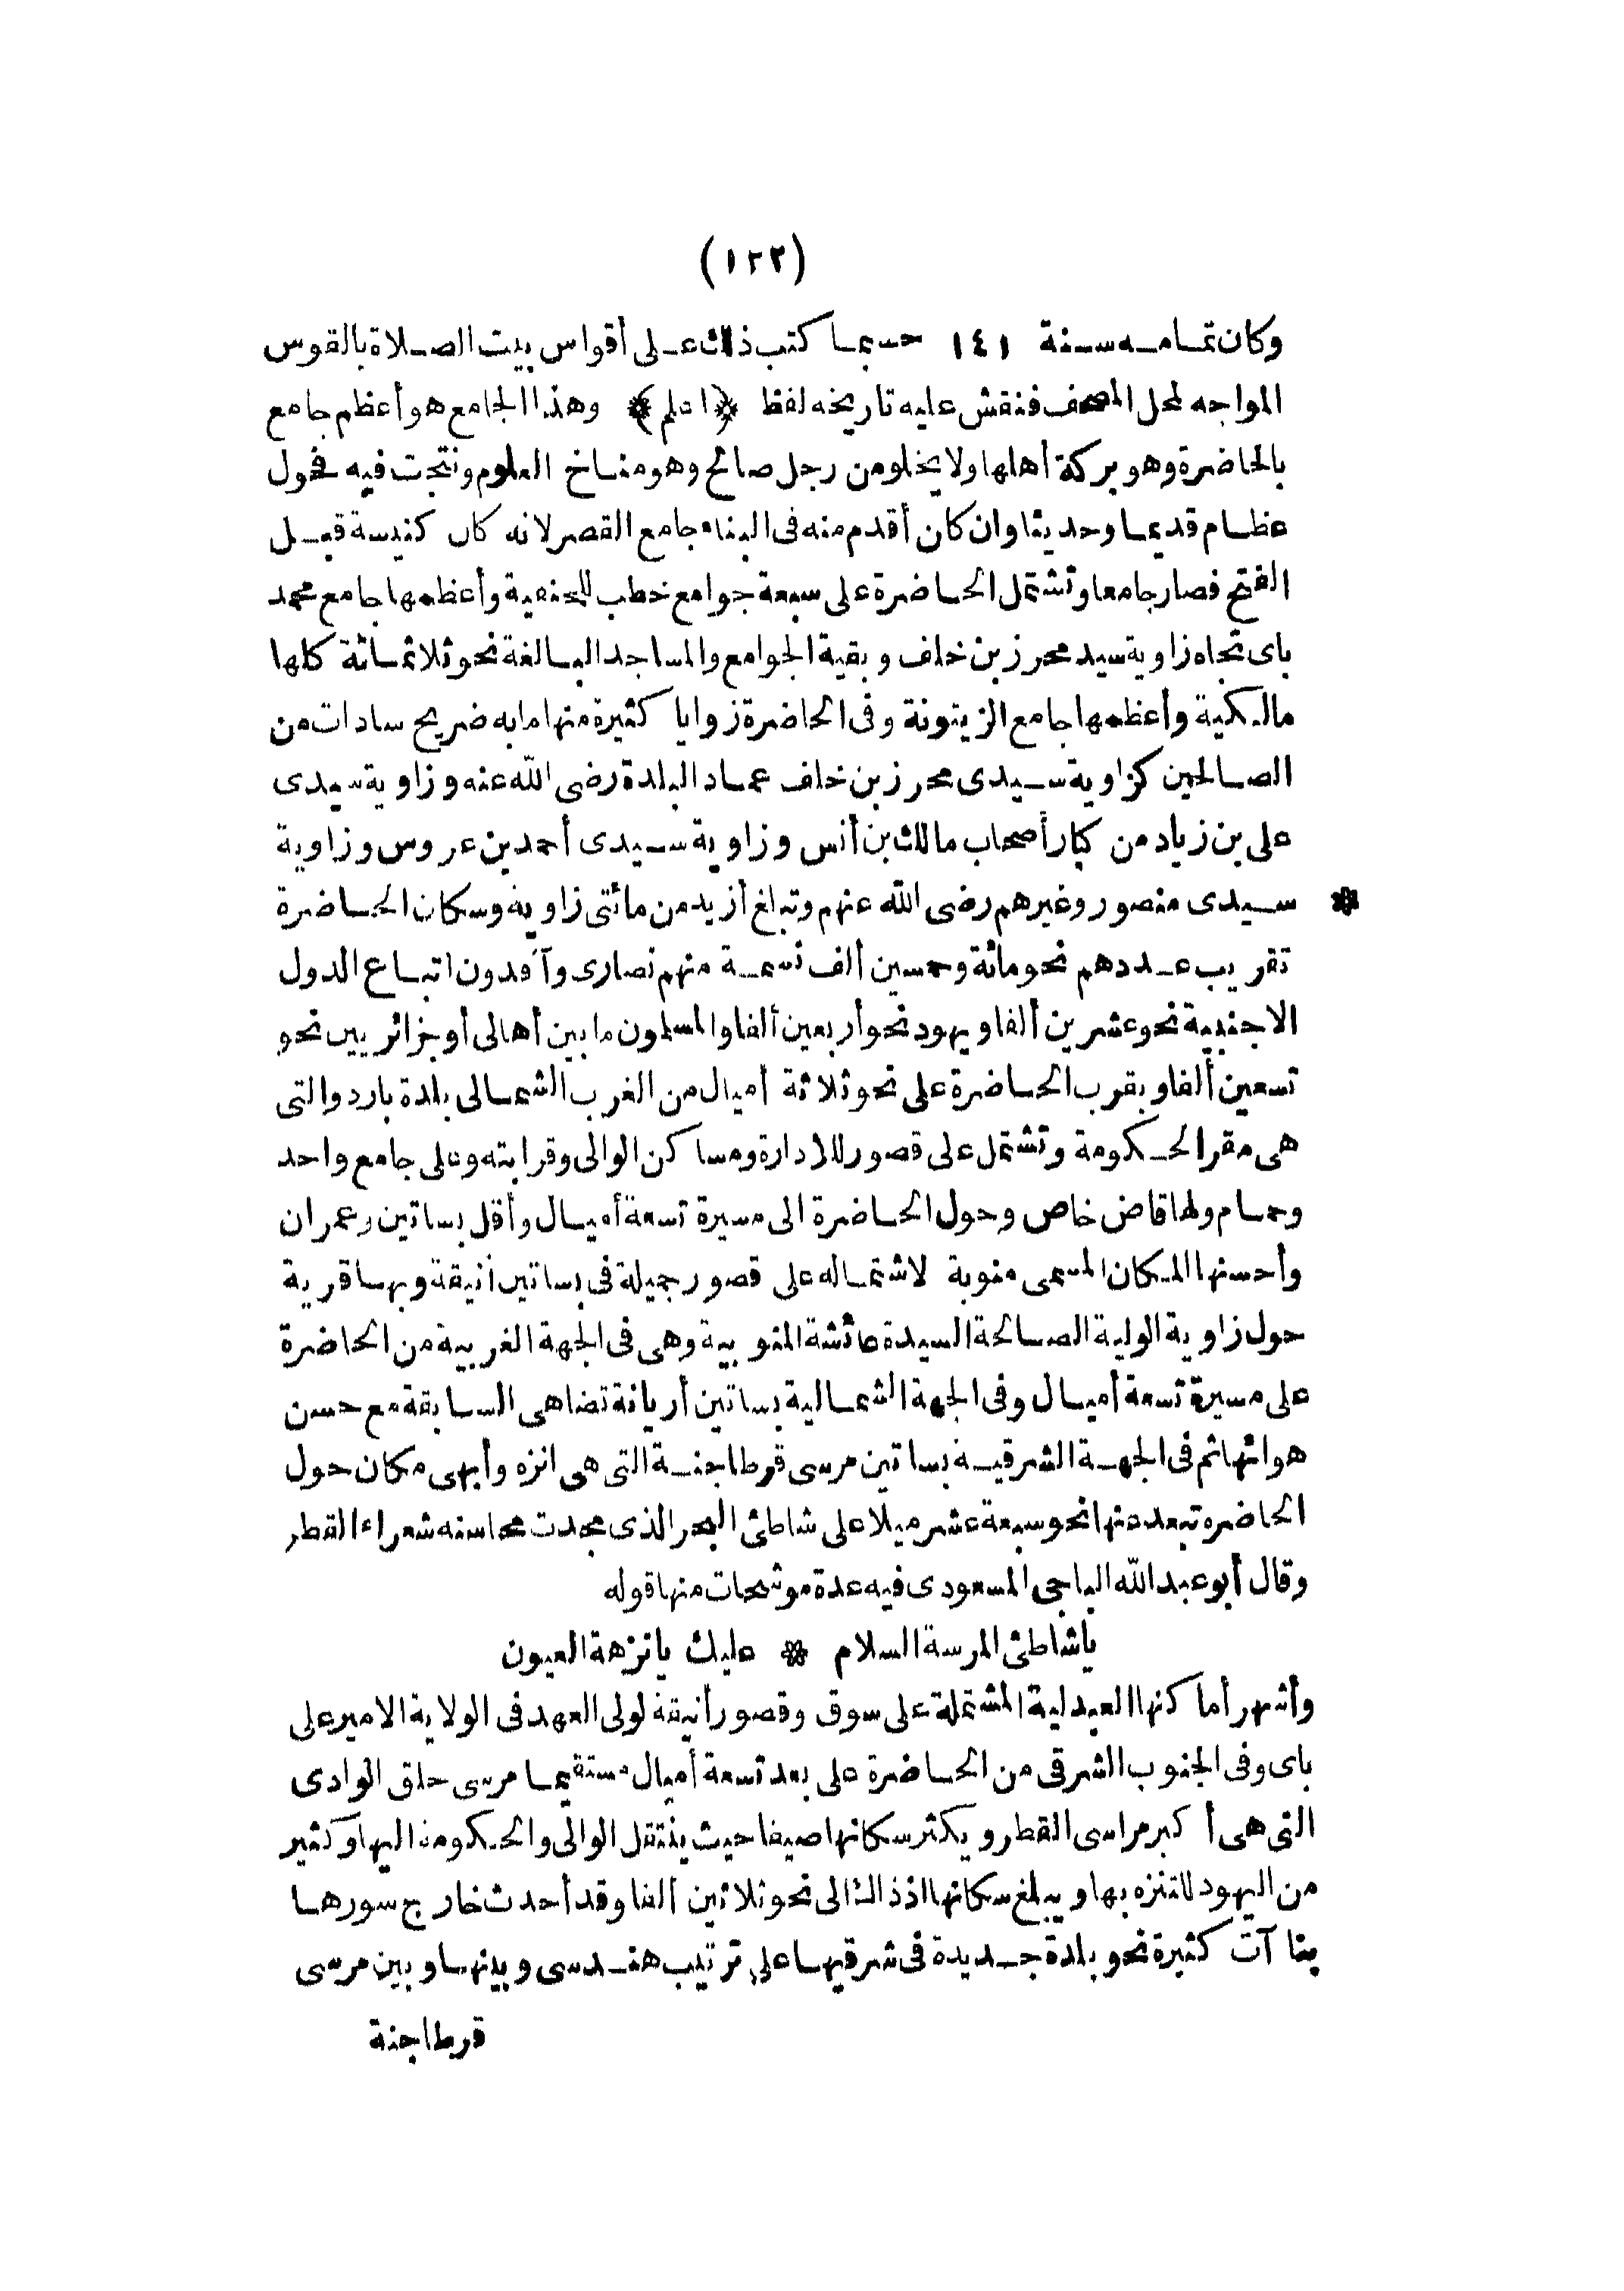 (١٢٢)
وكان تمامه سنة ١٤١ حسبما كتب ذلك على أقواس بيت الصلاة بالقوس
المواجه لمحل المصحف فنقش عليه تاريخه لفظ ﴿اعلم﴾ وهذا الجامع هو أعظم جامع
بالحاضرة وهو بركة أهلها ولا يخلو من رجل صالح وهو مناخ العلوم ونتجت فيه فحول
عظام قديما وحديثا وان كان أقدم منه فى البناء جامع القصر لانه كان كنيسة قبل
الفتح فصار جامعا وتشتمل الحاضرة على سبعة جوامع خطب للحنفية وأعظمها جامع محمد
باى تجاه زاوية سيد محرز بن خلف وبقية الجوامع والمساجد البالغة نحو ثلاثمائة كلها
مالكية وأعظمها جامع الزيتونة وفى الحاضرة زوايا كثيرة منها مابه ضريح سادات من
الصالحين كزاوية سيدى محرز بن خلف عماد البلدة رضى الله عنه وزاوية سيدى
على بن زياد من كبار أصحاب مالك بن أنس وزاوية سيدى أحمد بن عروس وزاوية
* سيدى منصور وغيرهم رضى الله عنهم وتبلغ أزيد من مائتى زاوية وسكان الحاضرة
تقريب عددهم نحو مائة وخمسين ألف نسمة منهم نصارى وآفدون اتباع الدول
الاجنبية نحو عشرين ألفا ويهود نحو أربعين ألفا والمسلمون ما بين أهالى أو جزائريين نحو
تسعين ألفا وبقرب الحاضرة على نحو ثلاثة أميال من الغرب الشمالى بلدة باردو التى
هى مقر الحكومة وتشتمل على قصور للادارة ومساكن الوالى وقرابته وعلى جامع واحد
وحمام ولها قاض خاص وحول الحاضرة الى مسيرة تسعة أميال وأقل بساتين وعمران
وأحسنها المكان المسمى منوبة لاشتماله على قصور جميلة فى بساتين أنيقة وبها قرية
حول زاوية الولية الصالحة السيدة عائشة المنوبية وهى فى الجهة الغربية من الحاضرة
على مسيرة تسعة أميال وفى الجهة الشمالية بساتين أريانة تضاهى السابقة مع حسن
هوائها ثم فى الجهة الشرقية بساتين مرسى قرطاجنة التى هى انزه وأبهى مكان حول
الحاضرة تبعد عنها نحو سبعة عشر ميلا على شاطئ البحر الذى مجدت محاسنه شعراء القطر
وقال أبو عبد الله الباجى المسعودى فيه عدة موشحات منها قوله
يا شاطئ المرسة السلام * عليك يا نزهة العيون
وأشهر أماكنها العبدلية المشتملة على سوق وقصور أنيقة لولى العهد فى الولاية الامير على
باى وفى الجنوب الشرقى من الحاضرة على بعد تسعة أميال مستقيما مرسى حلق الوادى
التى هى أكبر مراسى القطر ويكثر سكانها صيفا حيث ينتقل الوالى والحكومة اليها وكثير
من اليهود للتنزه بها ويبلغ سكانها اذ ذاك الى نحو ثلاثين ألفا وقد أحدث خارج سورها
بنا آت كثيرة نحو بلدة جديدة فى شرقيها على ترتيب هندسى وبينها وبين مرسى
قرطاجنة